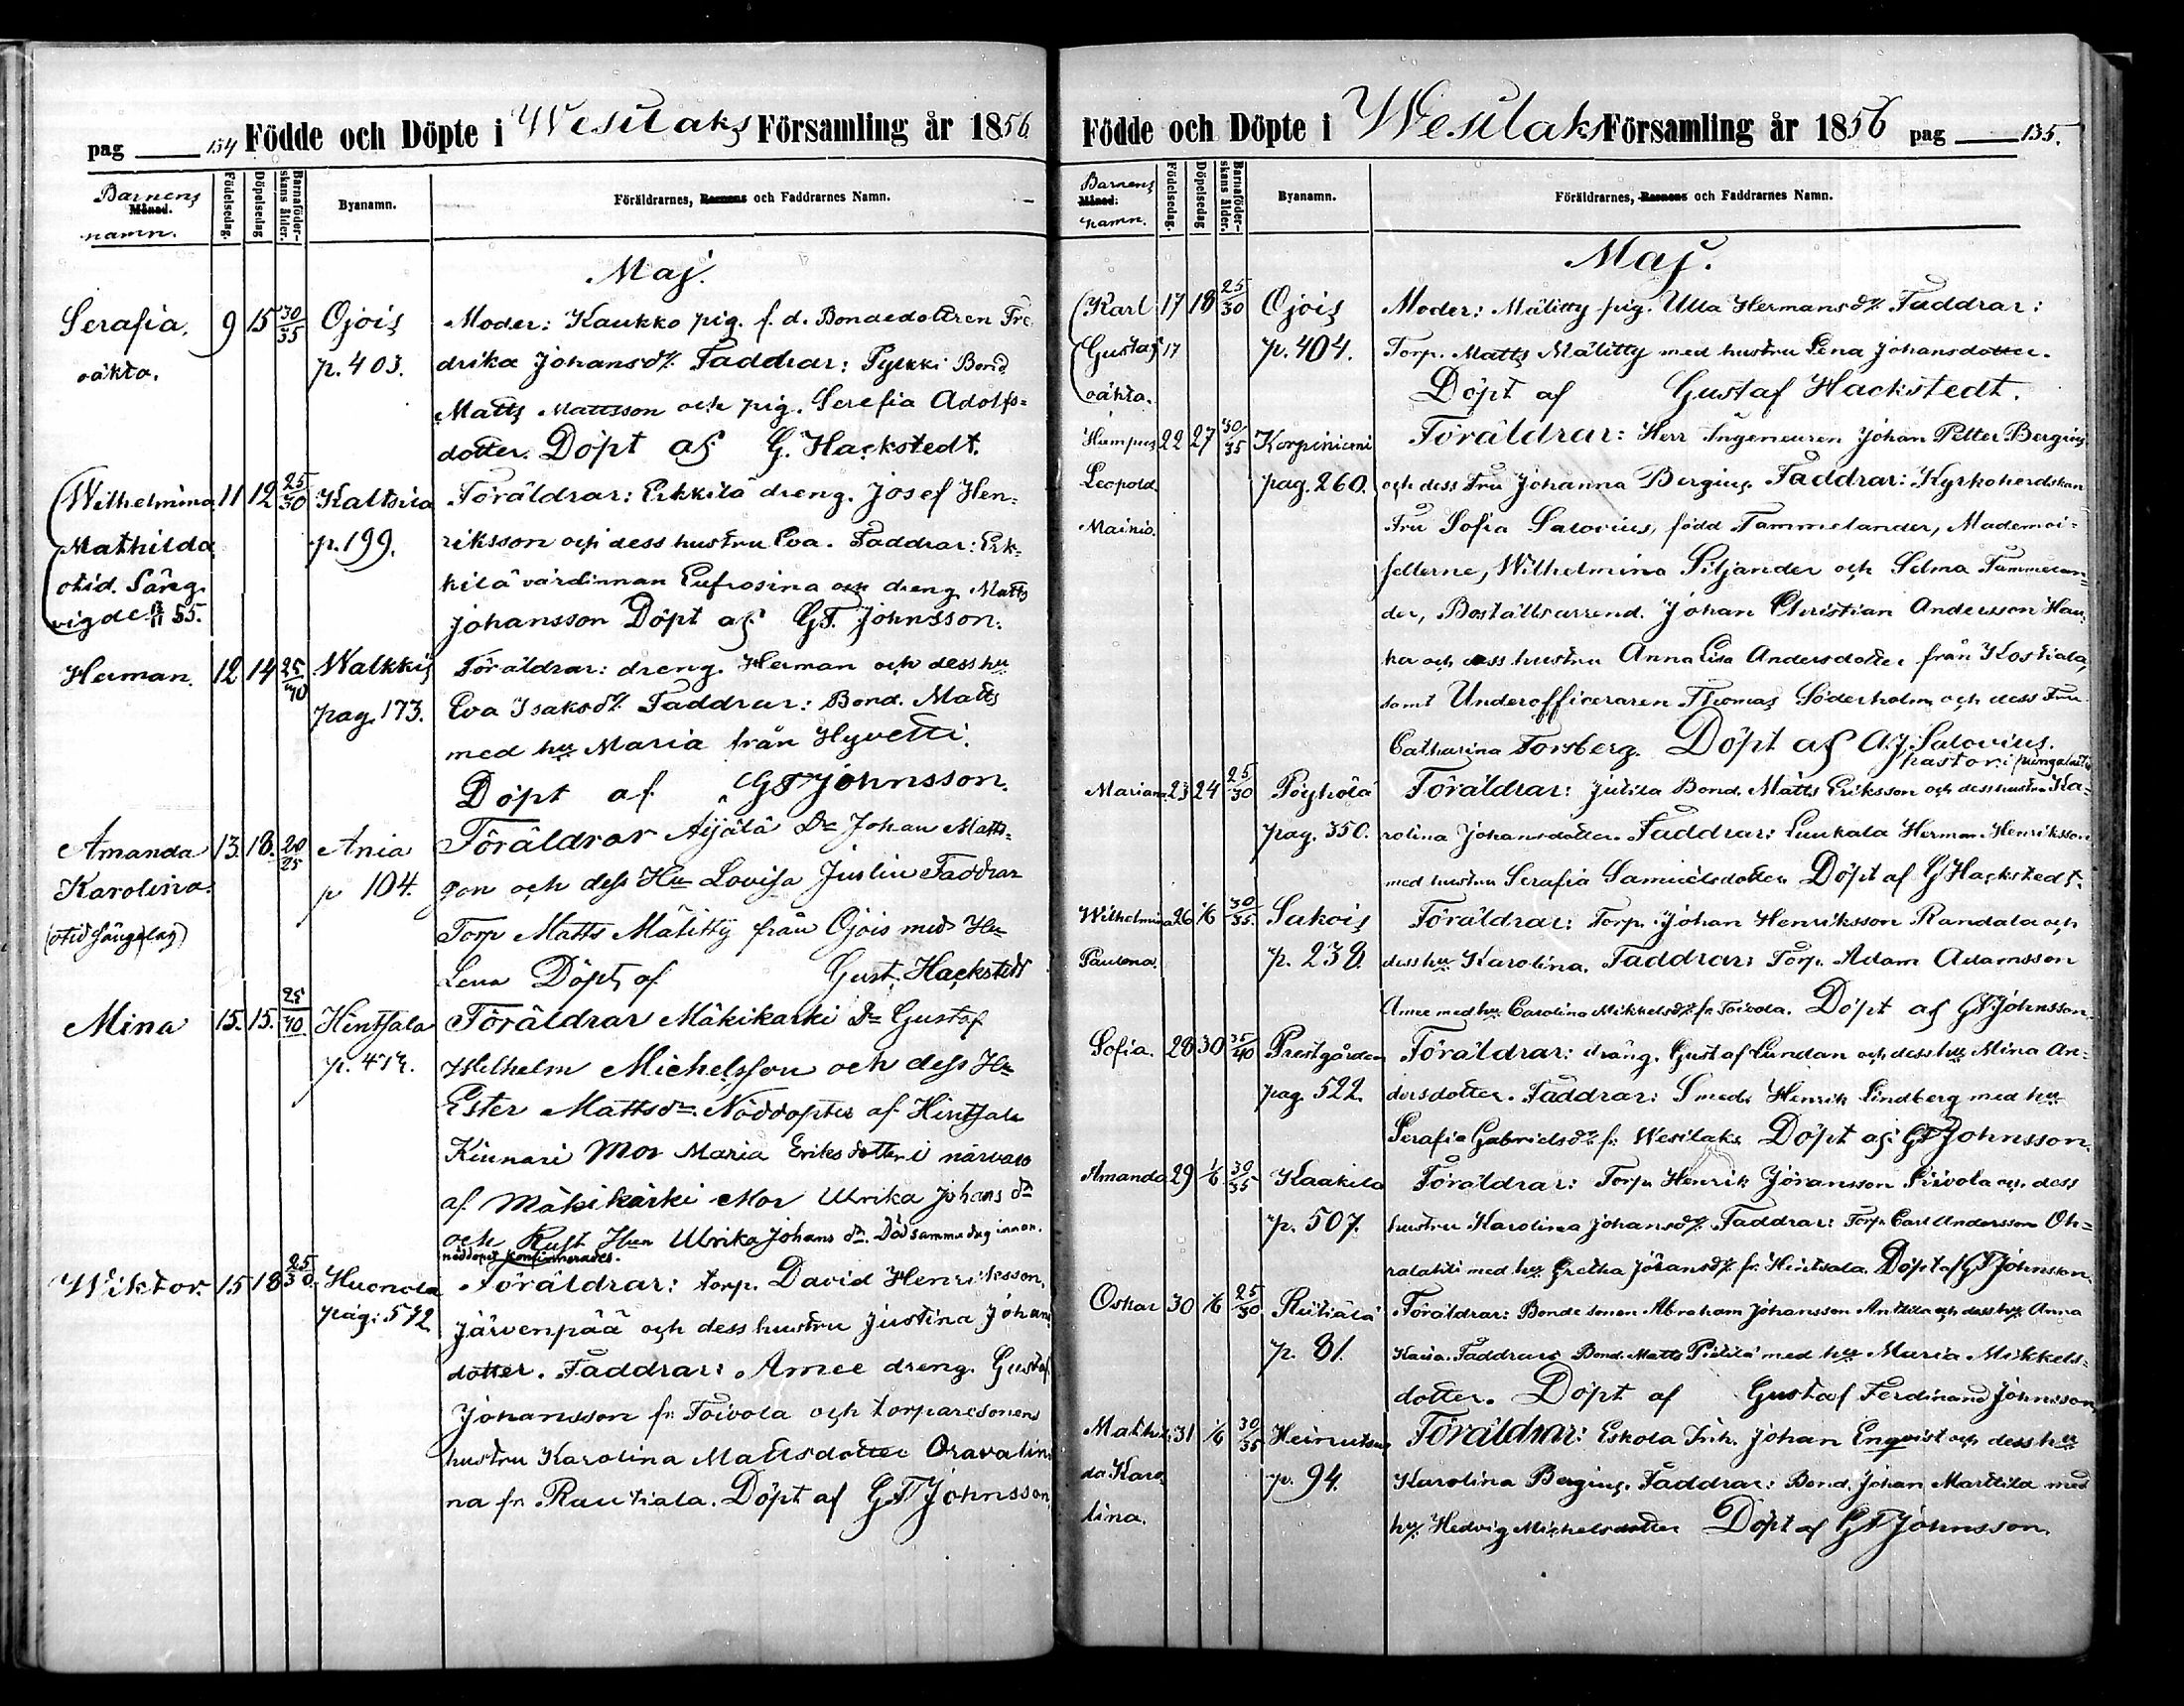 pag 134 Födde och Döpte i Wesilaks Församling år 1856
Barnens Månad. namn. Födelsedag. Döpelsedag Barnaföderskans ålder. Byanamn. Föräldrarnes, Barnens och Faddrarnes Namn.
Maj.
Serafia. 9 15 30/35 Ojois Moder: Kaukko pig. f. d. Bondedottren Fre
oäkta. p. 403. drika Johansdr. Faddrar: Pyrkki Bond
Matts Mattsson och pig. Serefia Adolfs=
dotter. Döpt af G. Hackstedt.
Wilhelmina 11 12 25/30 Kaltsila Föräldrar: Erkkilä dreng. Josef Hen=
Mathilda p. 199. riksson och dess hustru Eva. Faddrar: Erk=
otid. Säng kilä värdinnan Eufrosina och dreng. Matts
vigde 55. Johansson Döpt af GF. Johnsson.
Herman. 12 14 25/40 Walkkis Föräldrar: dreng. Herman och dess hu
pag. 173. Eva Isaksdr. Faddrar: Bond. Matts
med hu Maria från Hyvetti.
Döpt af GF Johnsson.
Amanda 13. 18. 20/25 Ania Föräldrar Äijälä Dr Johan Matts=
Karolina. p 104. son och dess Hu Lovisa Juslin Faddrar
(otid sängelag) Torp Matts Mälitty från Ojois med Hu
Lena Döpt af Gust. Hackstedt
Mina 15. 15. 25/40 Hintsala Föräldrar Mäkikärki Dr Gustaf
p. 474. Wilhelm Michelsson och dess Hu
Ester Mattsdr. Nöddöptes af Hintsala
Kinnari Mor Maria Eriksdotter i närvaro
af Mäkikärki Mor Ulrika Johans dr
och Rust. Hun Ulrika Johans dr. Död samma dag innan
nöddopet konfirmerades.
Wiktor. 15 18 25/30. Huonola Föräldrar: torp. David Henriksson,
pag: 592 Järvenpää och dess hustru Justina Johans
dotter. Faddrar: Amee dreng. Gustaf
Johansson fr. Toivola och torparesonens
hustru Karolina Mattsdotter Oravalin
na fr. Rautiala. Döpt af GF Johnsson
Födde och Döpte i Wesilaks Församling år 1856 pag 135.
Barnens Månad. namn. Födelsedag. Döpelsedag Barnaföderskans ålder. Byanamn. Föräldrarnes, Barnens och Faddrarnes Namn.
Maj.
Karl 17 18 25/30 Ojois Moder: Mälitty pig. Ulla Hermansdr. Faddrar:
Gustaf 17 p. 404. Torp. Matts Mälitty med hustru Lena Johansdotter.
oäkta. Döpt af Gustaf Hackstedt.
Hampus 22 27 30/35 Korpiniemi Föräldrar: Herr Ingeneuren Johan Petter Bergius
Leopold pag. 260. och dess Fru Johanna Bergius. Faddrar: Kyrkoherdskan
Mainio. Fru Sofia Salovius, född Tammelander, Mademoi=
sellerne, Wilhelmina Siljander och Selma Tammelan=
der, Boställsarrend. Johan Christian Andersson Hau
ka och dess hustru Anna Lisa Andersdotter från Kostiala,
samt Underofficeraren Thomas Söderholm och dess Fru
Catharina Forsberg. Döpt af A.J. Salovius.
pastor i pungalaitio
Mariana 23 24 25/30 Pöyhölä Föräldrar: Jutila Bond. Matts Eriksson och dess hustru Ka=
pag. 350. rolina Johansdotter. Faddrar: Luukala Herman Henriksson
med hustru Serafia Samuelsdotter. Döpt af G Hackstedt.
Wilhelmina 26 1/6 30/35. Sakois Föräldrar: Torp. Johan Henriksson Randala och
Paulina. p. 238. dess hu Karolina. Faddrar: Torp. Adam Adamsson
Amee med hu Carolina Mikkelsdr. fr. Toivola. Döpt af GF Johnsson.
Sofia. 28 30 35/40 Prestgården Föräldrar: dräng. Gustaf Lundan och dess hu Mina An=
pag. 522. dersdotter. Faddrar: Smed. Henrik Lindberg med hu
Serafia Gabrielsdr. fr. Wesilaks Döpt af GF Johnsson.
Amanda 29 1/6 30/35 Kaakila Föräldrar: Torp. Henrik Jöransson Siivola och dess
p. 507. hustru Karolina Johansdr. Faddrar: Torp. Carl Andersson Oh=
ralahti med hu Gretha Jöransdr. fr. Hintsala. Döpt af GF Johnsson.
Oskar 30 1/6 25/30 Riitiälä Föräldrar: Bondesonen Abraham Johansson Anttila och dess hu Anna
p. 81. Kaisa. Faddrar: Bond. Matts Pietilä med hu Maria Mikkels=
dotter. Döpt af Gustaf Ferdinand Johnsson,
Mathil 31 1/6 30/35 Heinutsuo Föräldrar: Eskola Inh. Johan Enqvist och dess hu
da Karo p. 94. Karolina Bergius. Faddrar: Bond. Johan Marttila med
lina. hu. Hedvig Michelsdotter Döpt af GF Johnsson.